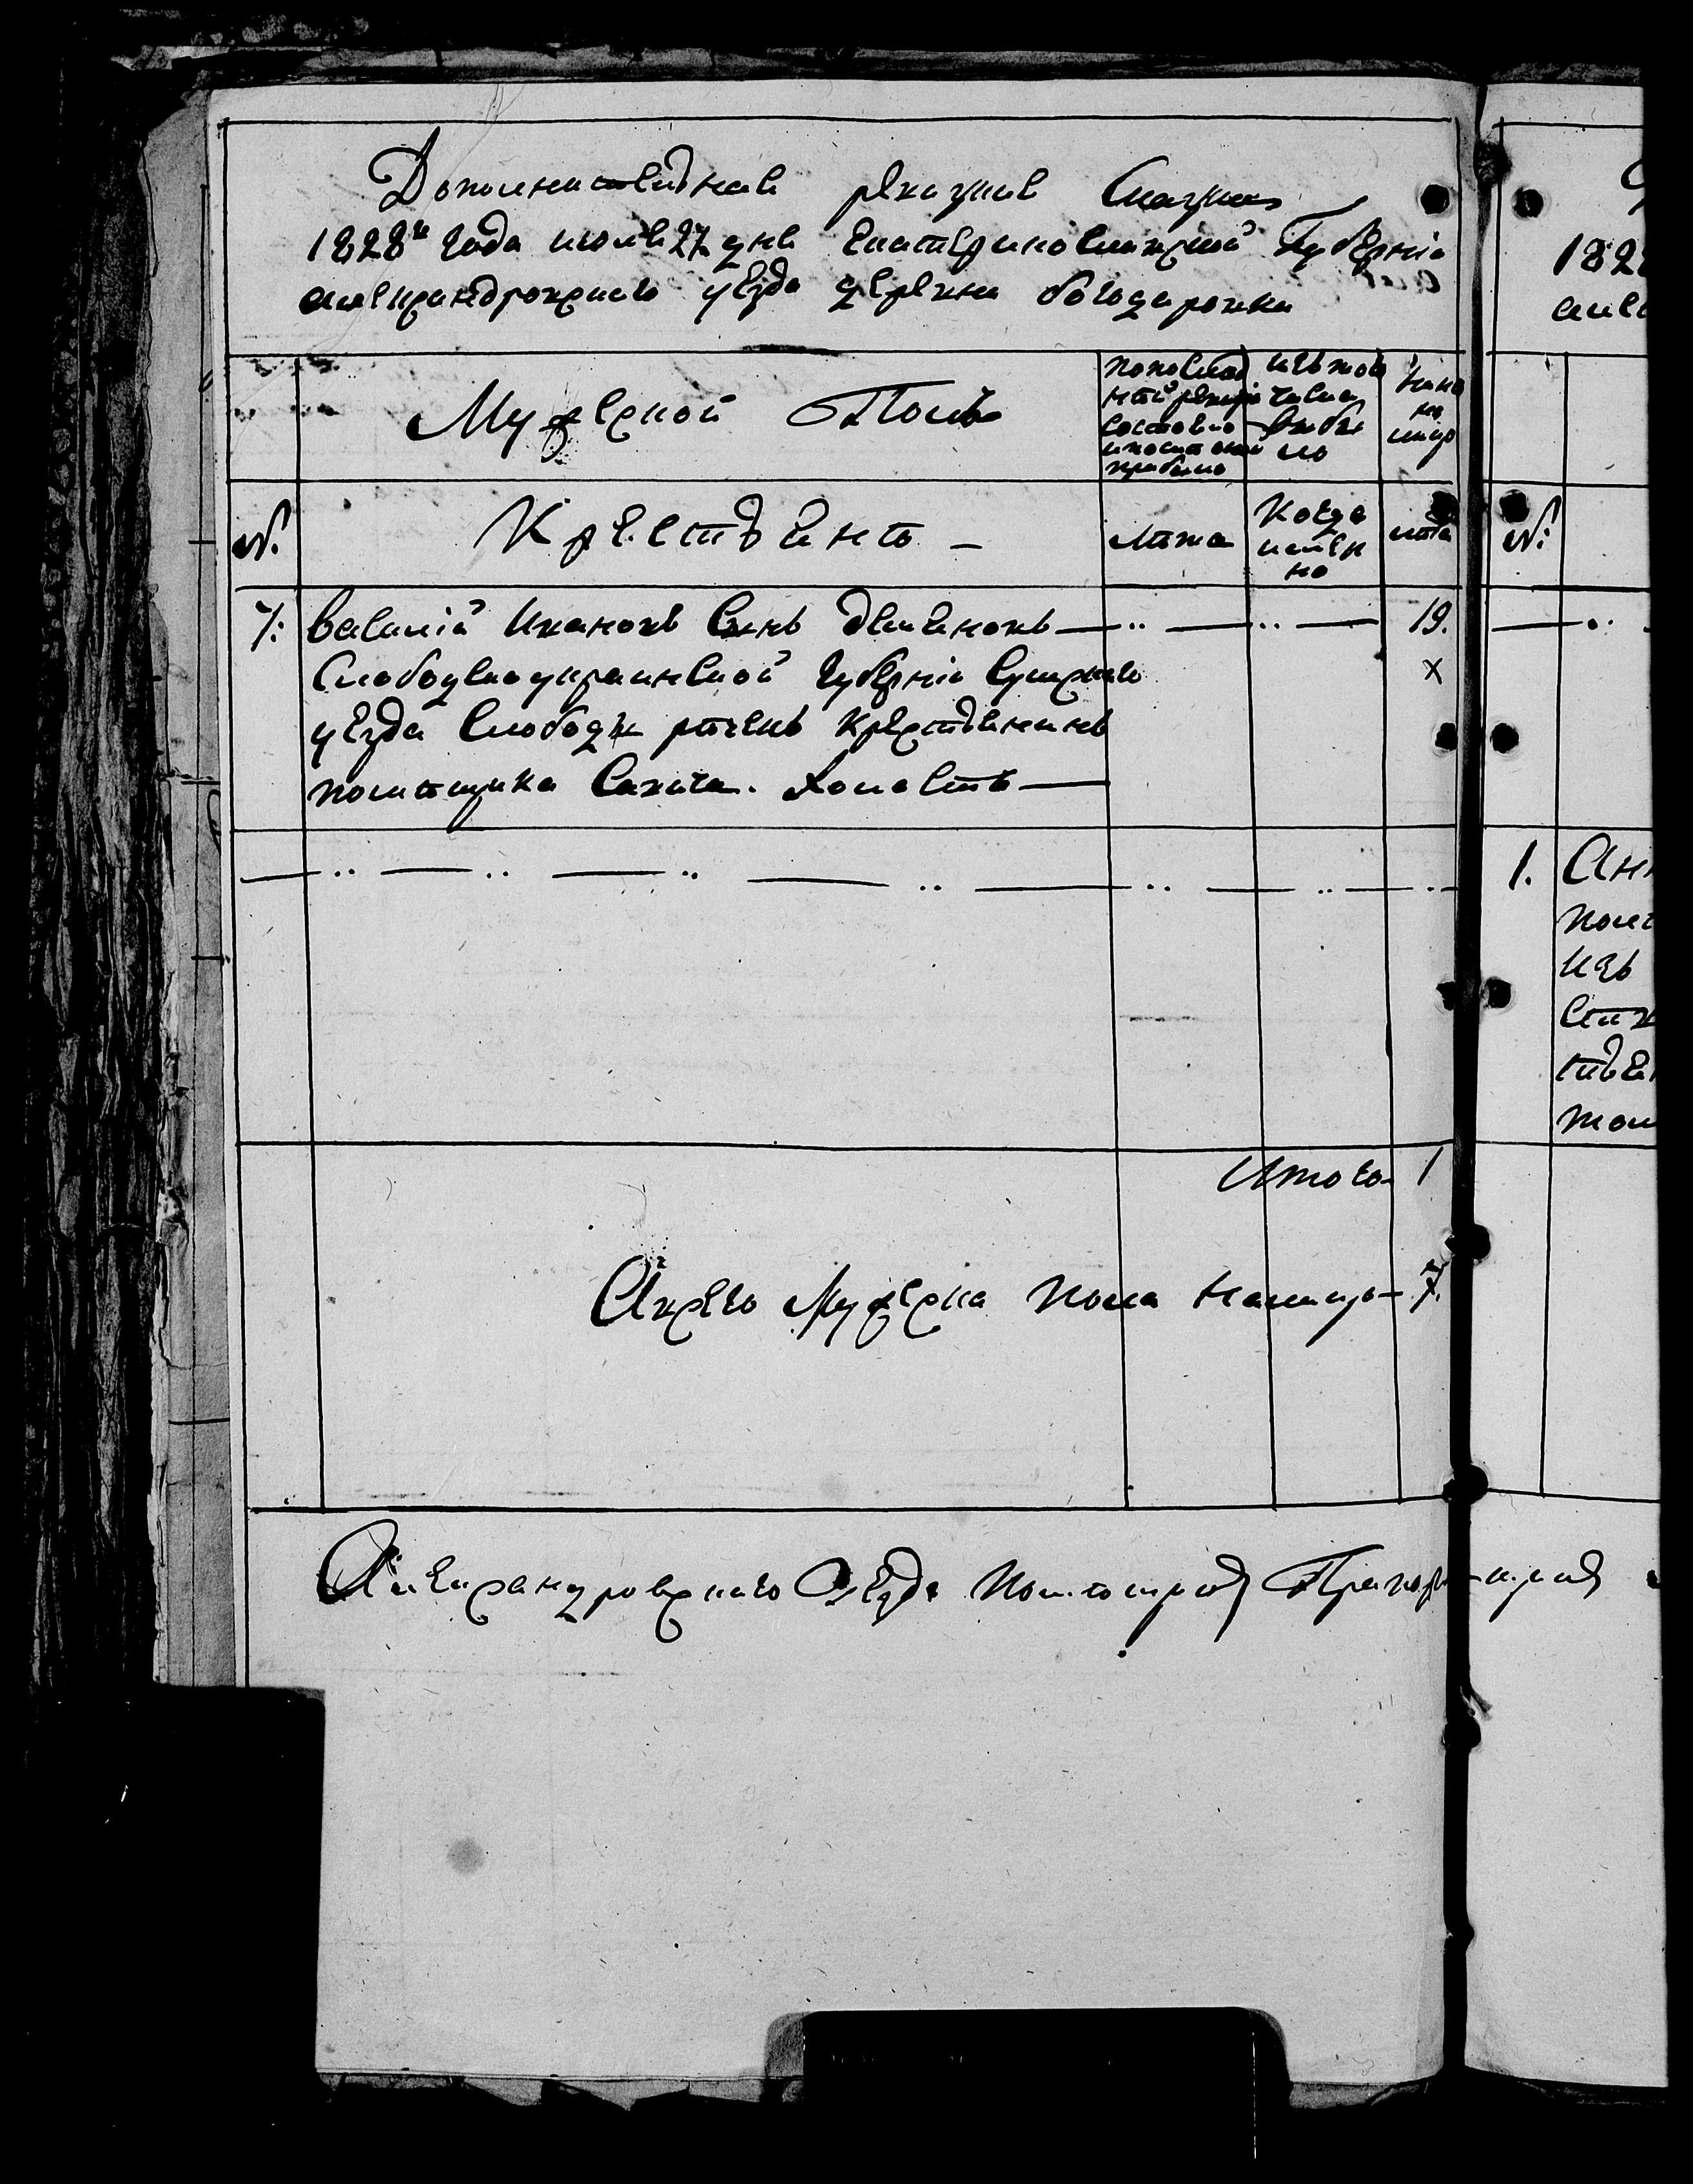 Дополнительная ревизкая Сказка
1828го года июля 27 дня Екатеринославской Губернiи
александровскаго уезда деревни богодаровки
Мужеской Полъ
по последней ревизiи состояло и после оной прибыло
изъ того числа выбыло
ныне на лицо
№.
Крестьянъ —
лета
Когда именно
лета
7: Василiй Ивановъ Сынъ — .. — .. — 19.
Слободскоукраинской Губернiи Сумскаго х
уезда Слободы речекъ крестьянинъ
помещика Савича. холостъ —
— .. — .. — .. — .. — .. — .. — ..
Итого 1
А всего Мужеска пола налицо — 7.
Александровскаго Уезда Помещикъ Прапорщикъ
182
але
№:
— ..
1. Анн
поме
изъ